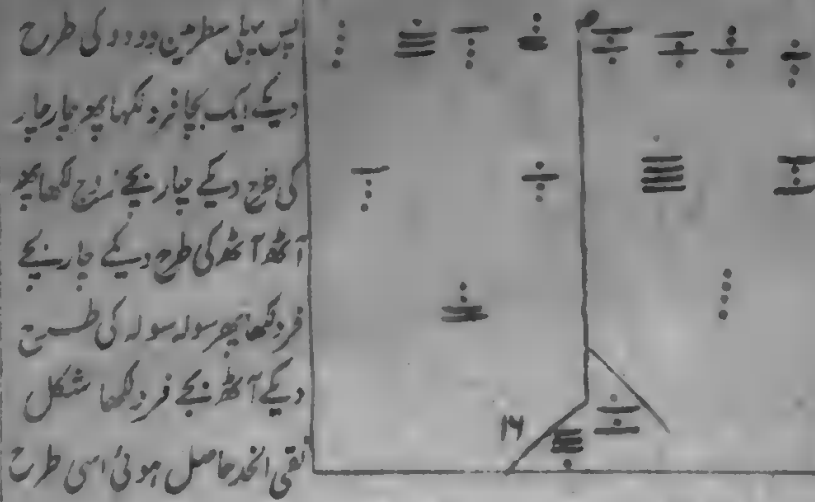 پس پہلی سطر مین دو دو کی طرح
دیکے ایک بچا فرد لکھا پھر چار چار
کی طرح دیکے چار بچے زوج لکھا پھر
آٹھ آٹھ کی طرح دیکے چار بچے
فرد لکھا پھر سولہ سولہ کی طرح
دیکے آٹھ بچے فرد لکھا شکل
نقی الخد حاصل ہوئی اسی طرح
۱۴